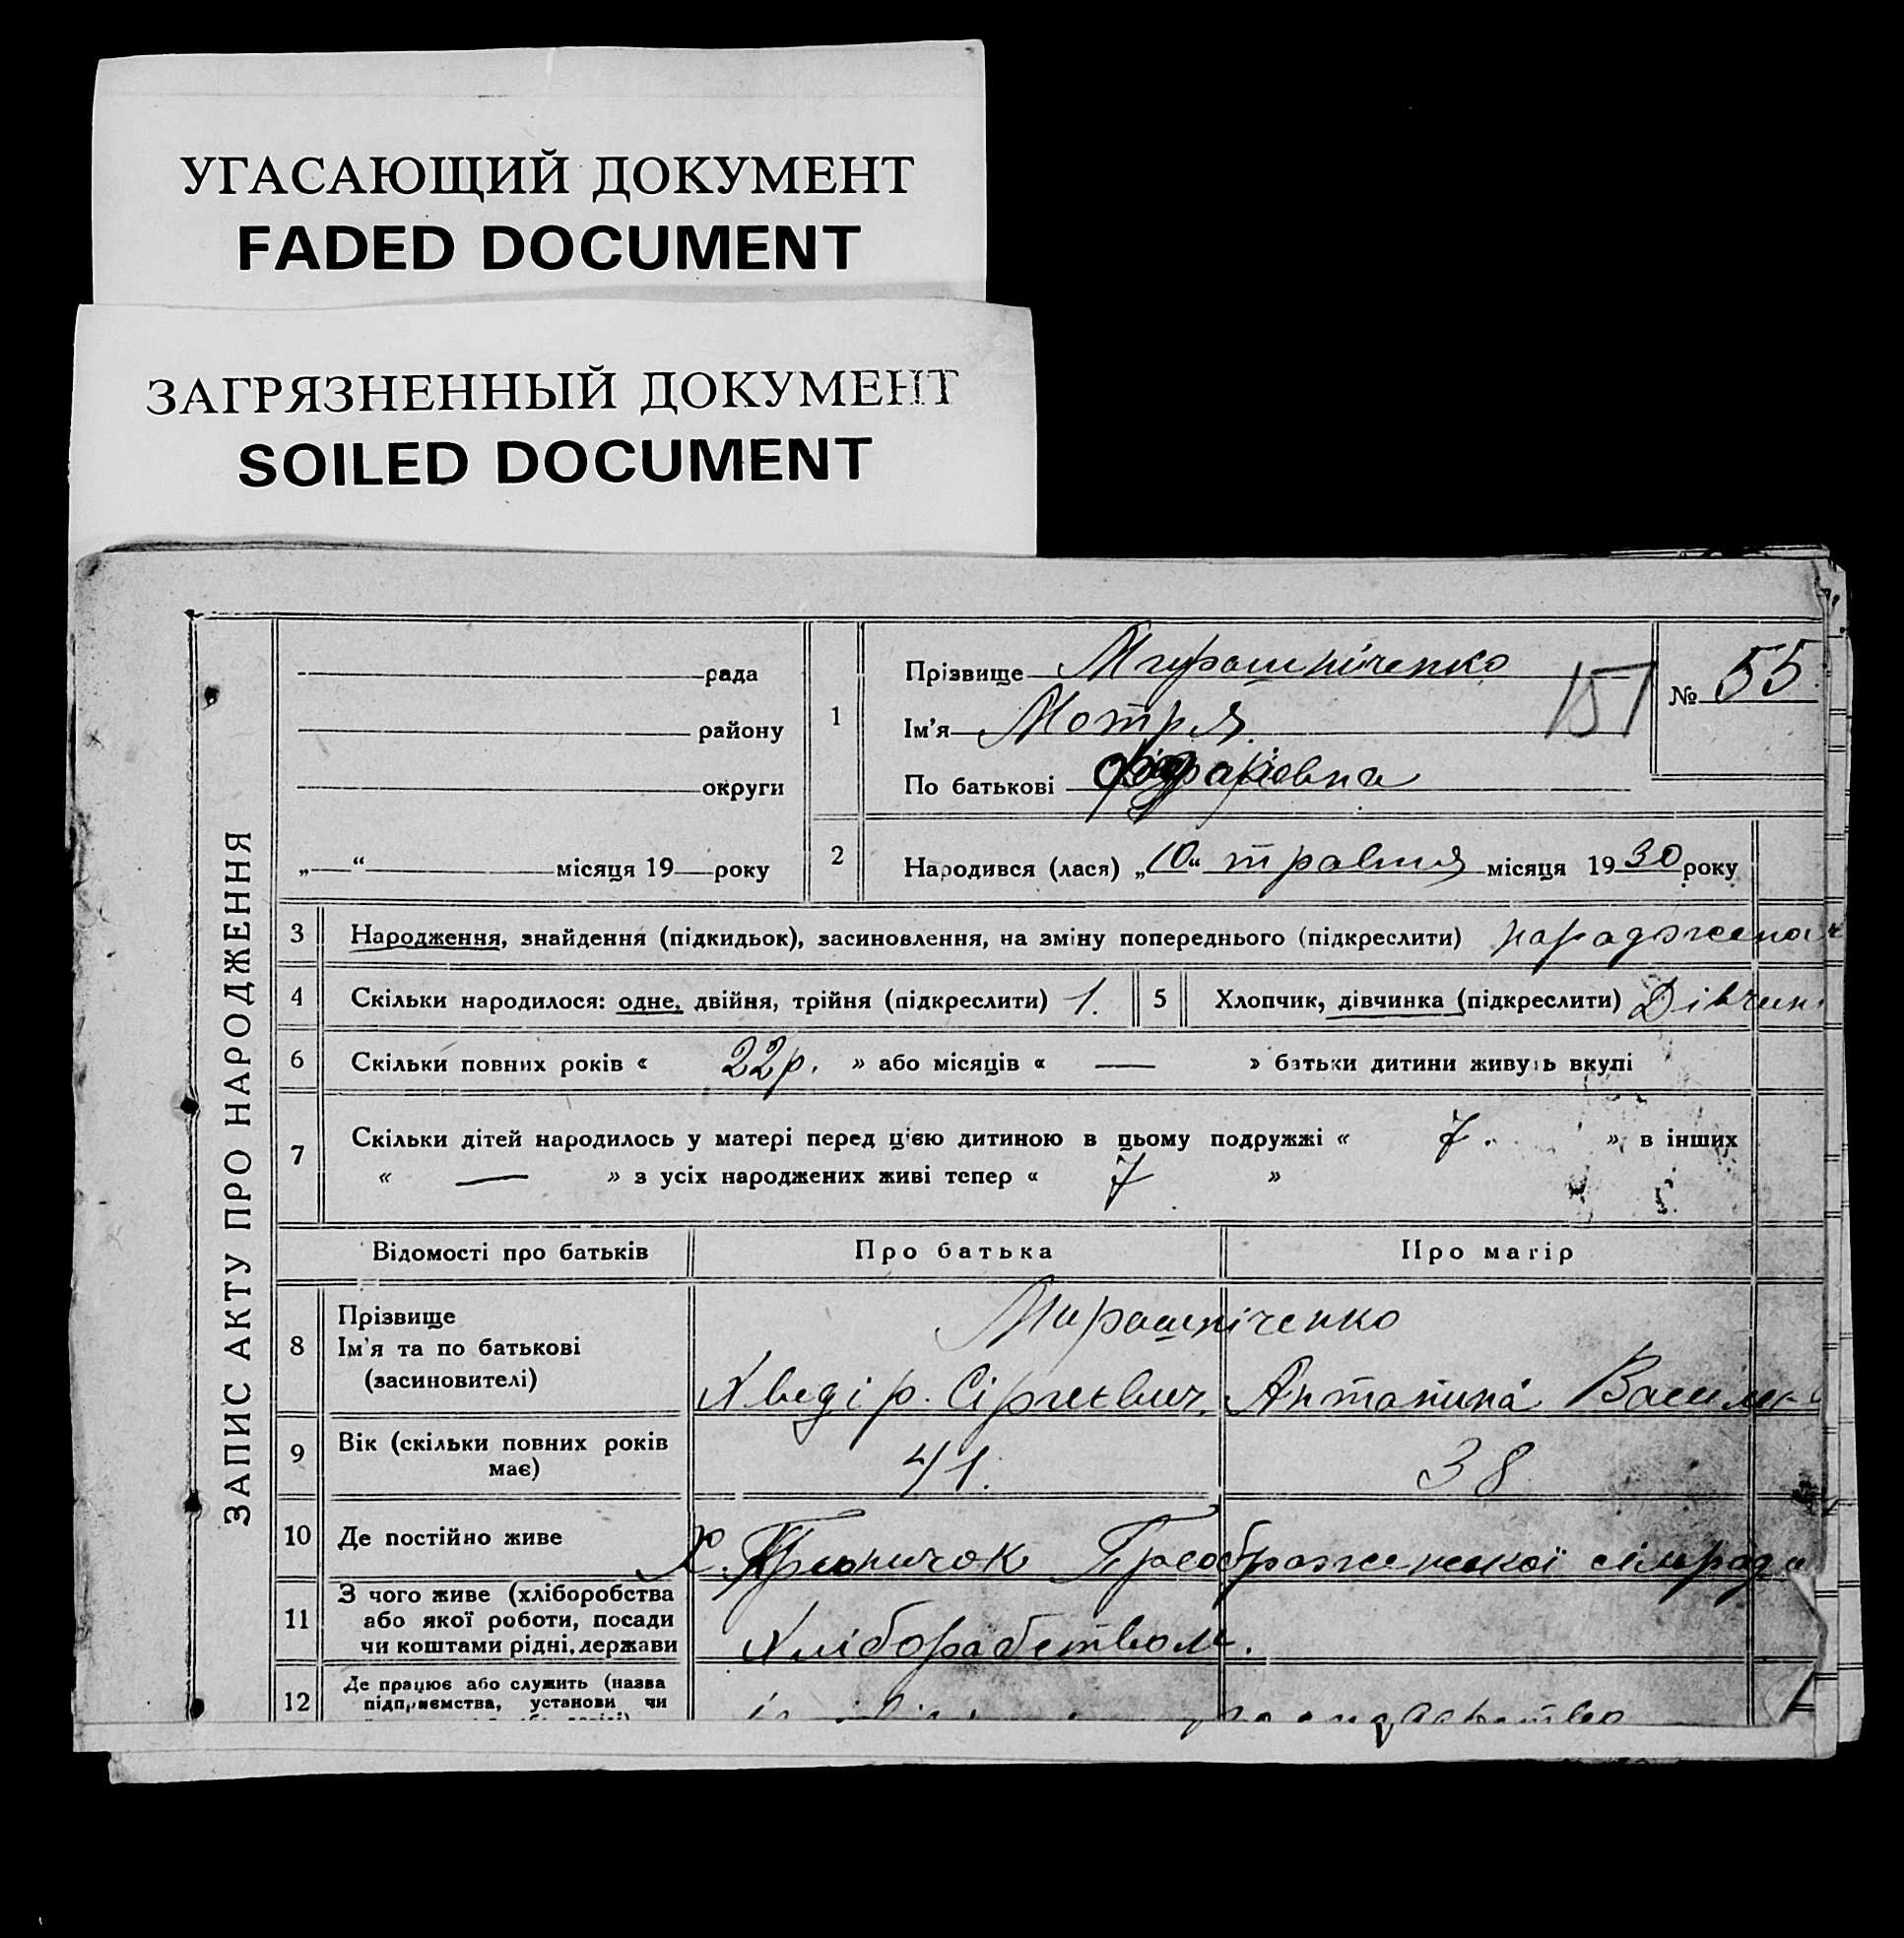 УГАСАЮЩИЙ ДОКУМЕНТ
FADED DOCUMENT
ЗАГРЯЗНЕННЫЙ ДОКУМЕНТ
SOILED DOCUMENT
ЗАПИС АКТУ ПРО НАРОДЖЕННЯ
рада
району
округи
„—“ місяця 19 року
1
Прізвище Мирошніченко
Ім'я Мотря
По батькові
151
№ 55
2
Народився (лася) „10“ травня місяця 1930 року
3 Народження, знайдення (підкидьок), засиновлення, на зміну попереднього (підкреслити) народження
4 Скільки народилося: одне, двійня, трійня (підкреслити) 1.
5 Хлопчик, дівчинка (підкреслити) Дівчин
6 Скільки повних років « 22 р. » або місяців « — » батьки дитини живуть вкупі
7 Скільки дітей народилось у матері перед цією дитиною в цьому подружжі « 7. » в інших
« — » з усіх народжених живі тепер « 7 »
Відомості про батьків Про батька Про матір
8 Прізвище
Ім'я та по батькові
(засиновителі)
Мирошніченко
Хведір Сіргієвич. Антонина Васил
9 Вік (скільки повних років має) 41. 38
10 Де постійно живе Х. Преображенської сільради
11 З чого живе (хліборобства
або якої роботи, посади
чи коштами рідні, держави
Хліборобством.
12 Де працює або служить (назва
підприємства, установи чи